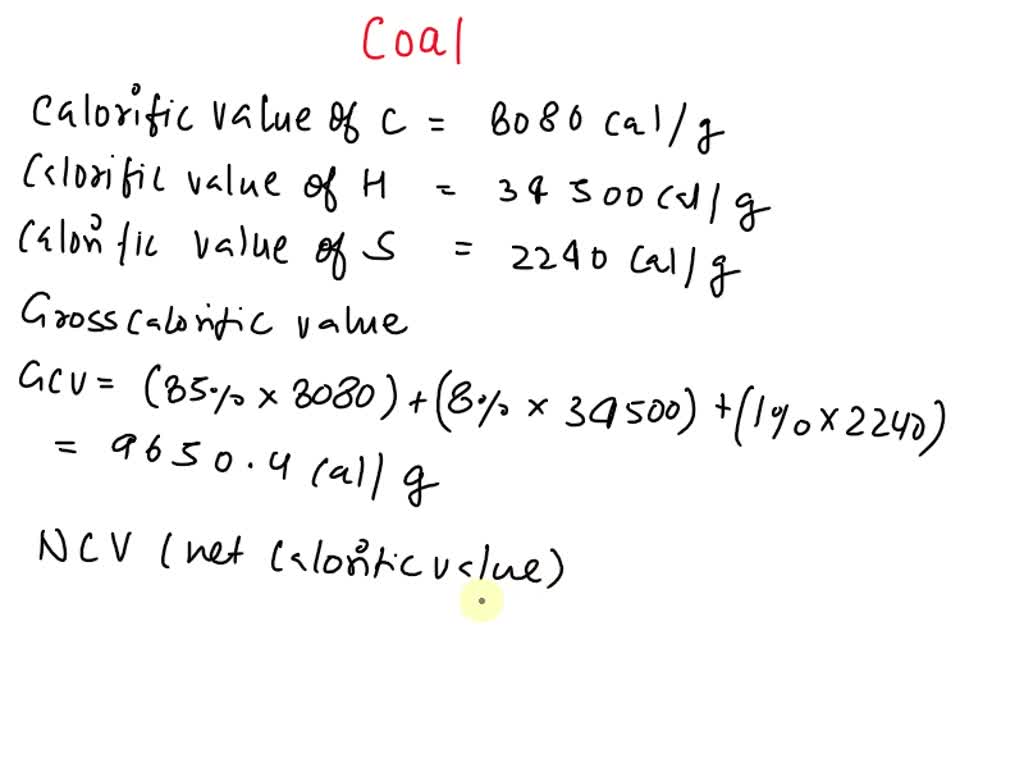 Coal
Calorific value of C = 8080 cal/g
Calorific value of H = 34500 cal/g
Calorific value of S = 2240 cal/g
Gross calorific value
GCV = (85% × 8080) + (8% × 34500) + (1% × 2240)
= 9650.4 cal/g
NCV (net calorific value)